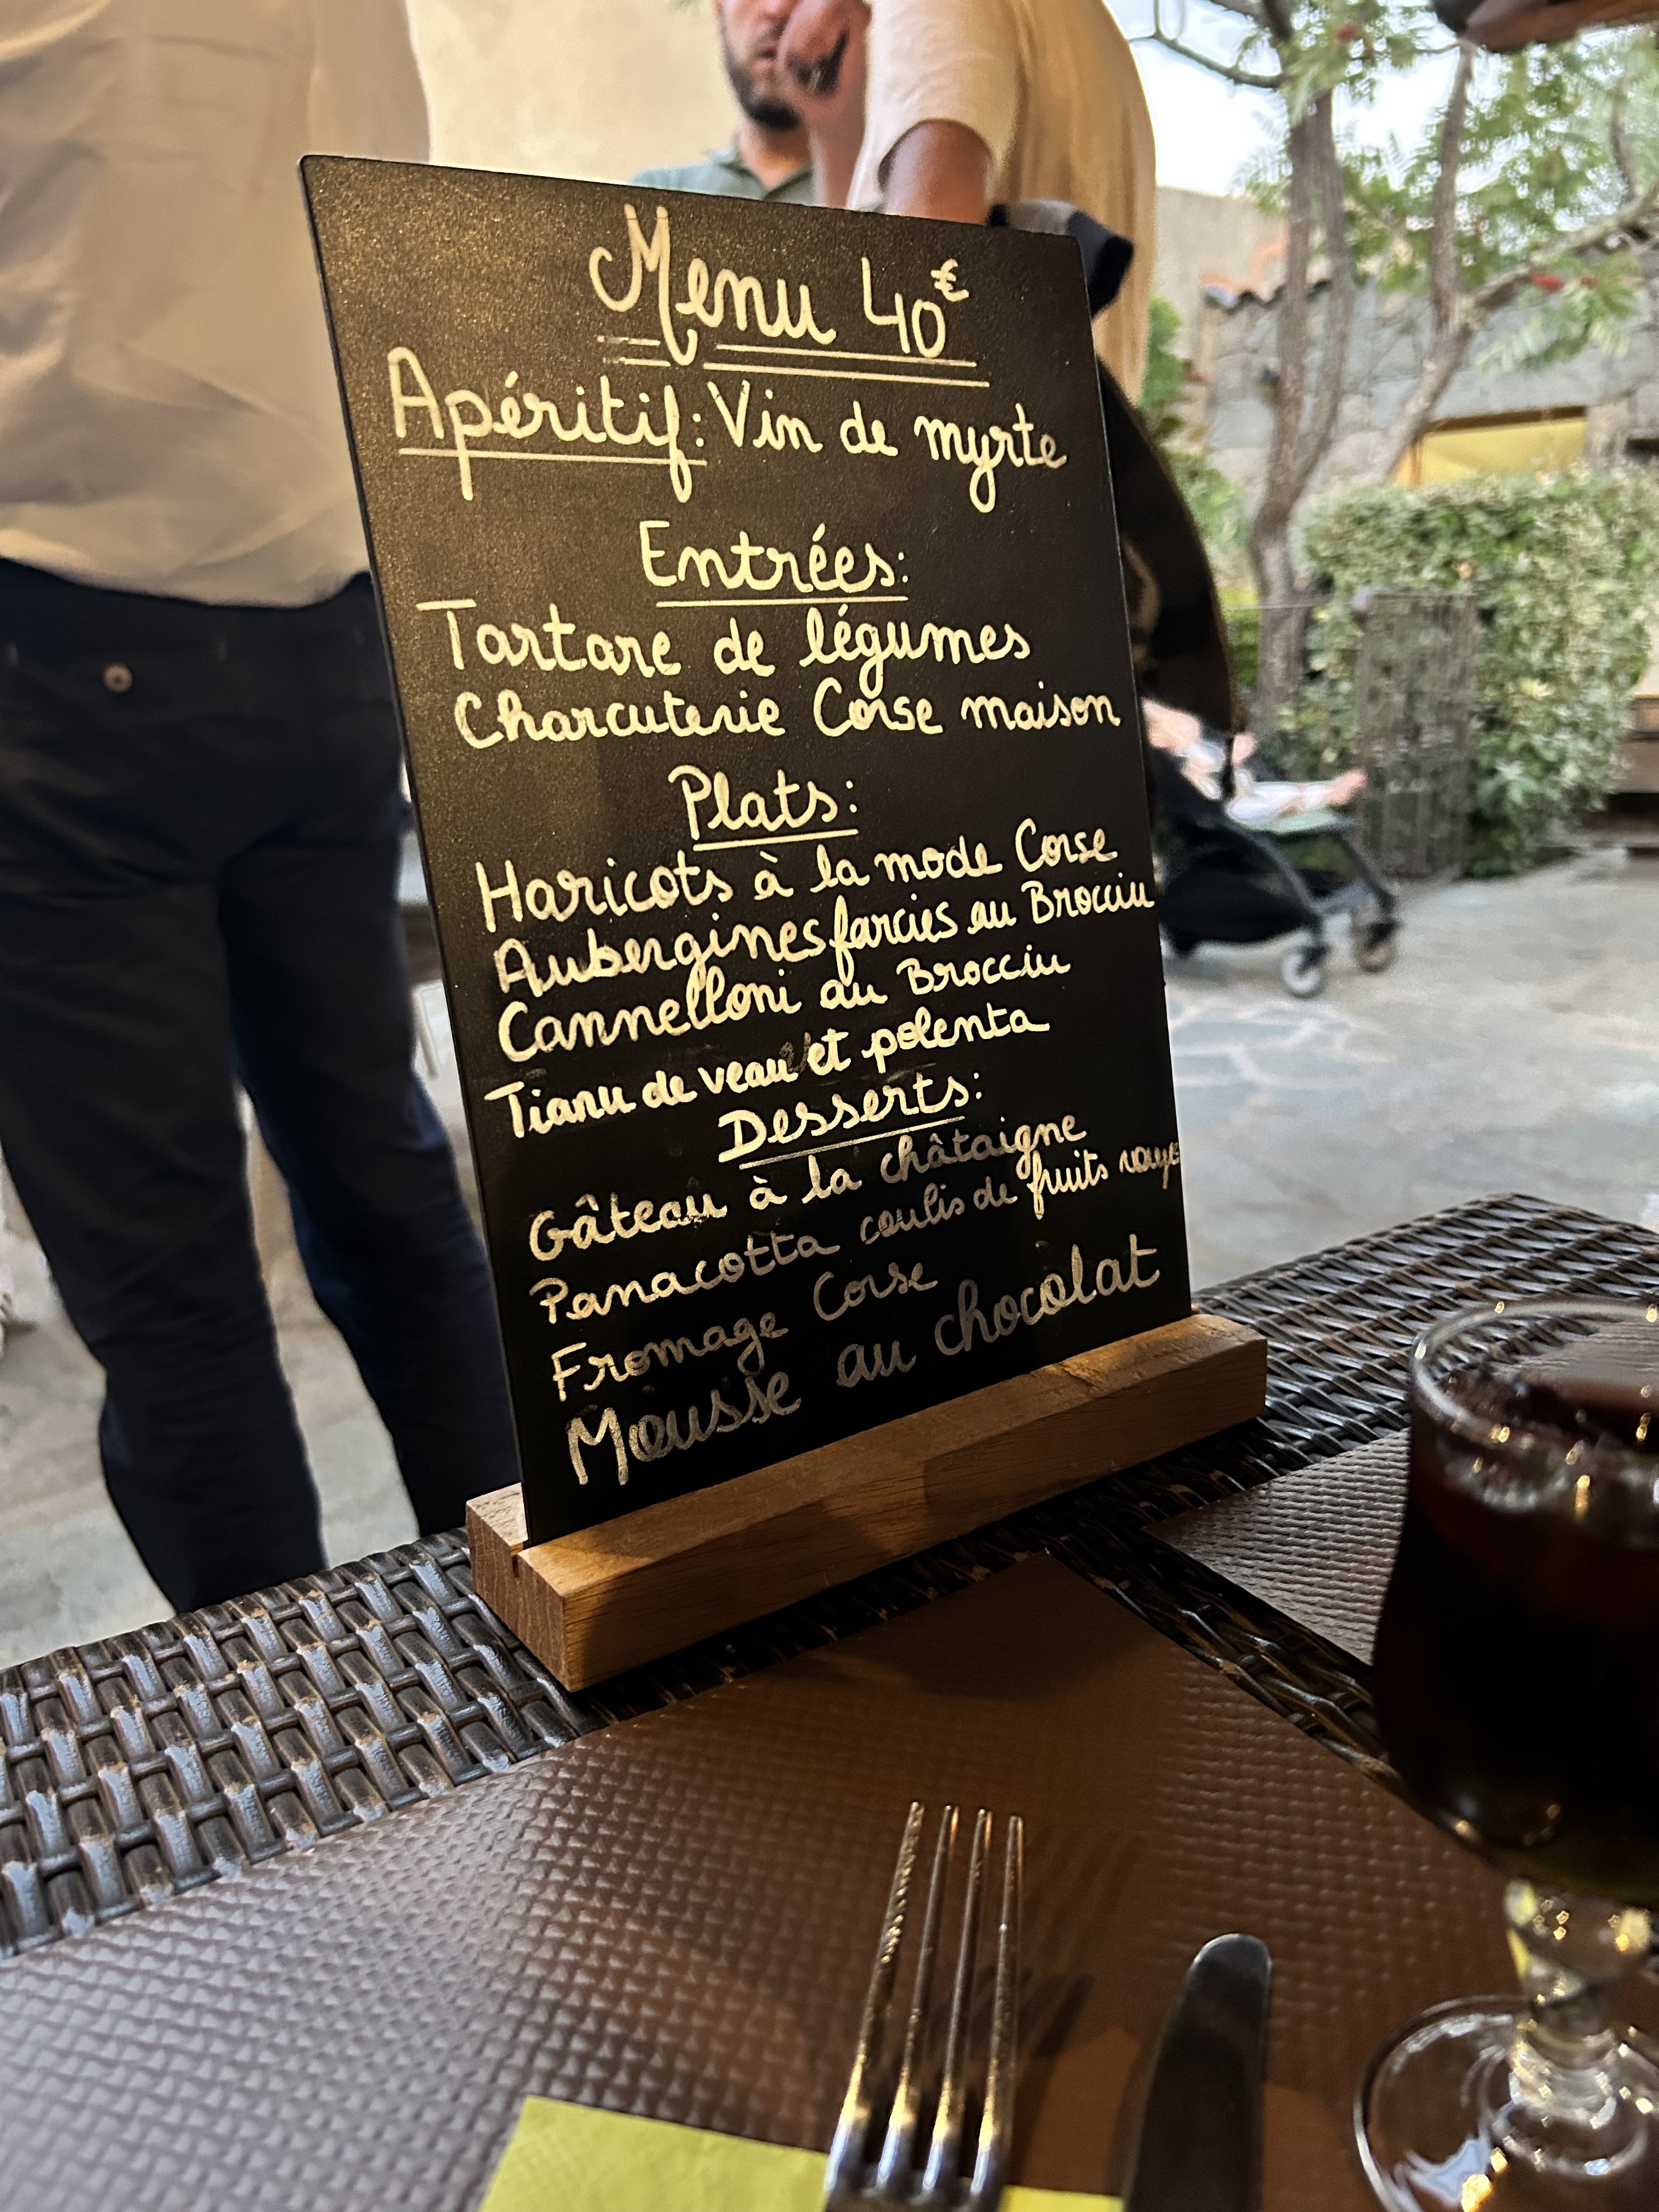 Menu 40€
Apéritif: Vin de myrte
Entrées:
Tartare de légumes
Charcuterie Corse maison
Plats:
Haricots à la mode Corse
Aubergines farcies au Brocciu
Cannelloni au Brocciu
Tianu de veau et polenta
Desserts:
Gâteau à la châtaigne
Panacotta coulis de fruits rouge
Fromage Corse
Mousse au chocolat